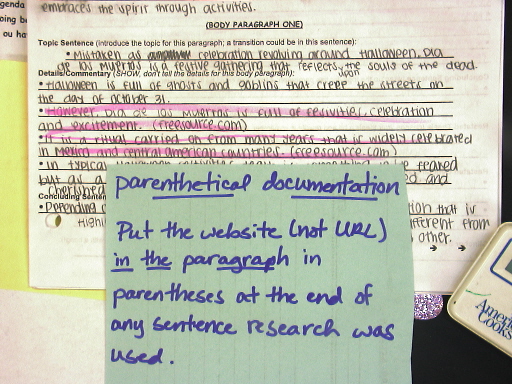 genda
ing b
ou ha
embraces the spirit through activities.
(BODY PARAGRAPH ONE)
Topic Sentence (introduce the topic for this paragraph; a transition could be in this sentence):
• Mistaken as celebration revolving around Halloween, Dia
de los muertos is a festive gathering that reflects upon the souls of the dead.
Details/Commentary (SHOW, don't tell the details for this body paragraph):
• Halloween is full of ghosts and goblins that creep the streets on
the day of october 31.
• However, Dia de los muertos is full of festivities, celebration
and excitement. (freesource.com)
• It is a ritual carried on from many years that is widely celebrated
in Mexico and central american countries. (freesource.com)
• in typical to be feared
but as and
cherished
Concluding Senten
• Depending tion that is
High ifferent from
other.
parenthetical documentation
Put the website (not URL)
in the paragraph in
parentheses at the end of
any sentence research was
used.
Americ
Cooks